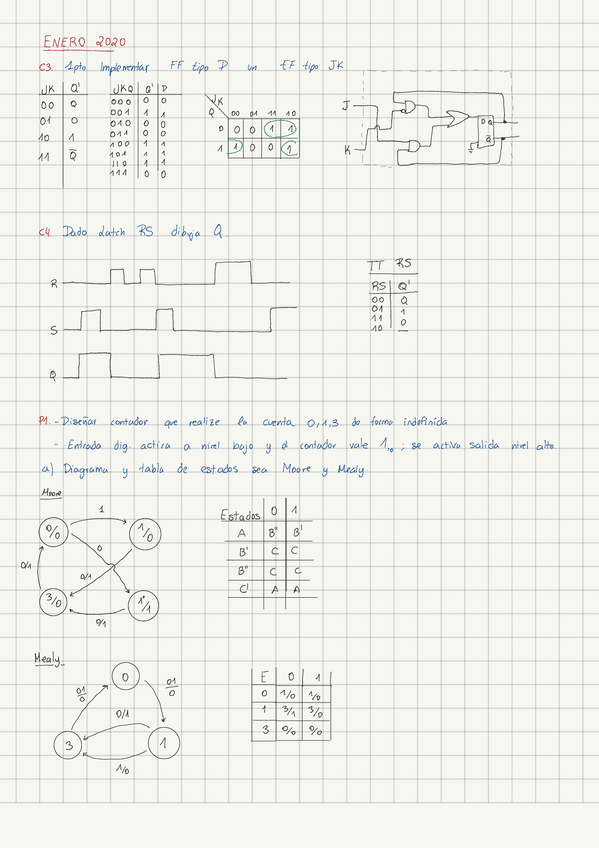 ENERO 2020
C3. 1pto Implementar FF tipo D un FF tipo JK
JK Q'
00 Q
01 0
10 1
11 Q̅
JKQ Q' D
000 0 0
001 1 1
010 0 0
011 0 0
100 1 1
101 1 1
110 1 1
111 0 0
JK
Q 00 01 11 10
0 0 0 1 1
1 1 0 0 1
J
K
D Q
Q̅
C4 Dado latch RS dibuja Q.
R
S
Q
TT RS
RS Q'
00 Q
01 1
11 0
10 —
P1. - Diseñar contador que realize la cuenta 0,1,3 de forma indefinida
- Entrada dig. activa a nivel bajo y el contador vale 1₁₀ ; se activa salida nivel alto.
a) Diagrama y tabla de estados sea Moore y Mealy.
Moore
0/0
1
1/0
0
0/1
0/1
3/0
0/1
1''/1
Estados 0 1
A B'' B'
B' C C
B'' C C
C' A A
Mealy
0
01/0
01/0
0/1
3
1
1/0
E 0 1
0 1/0 1/0
1 3/1 3/0
3 0/0 0/0